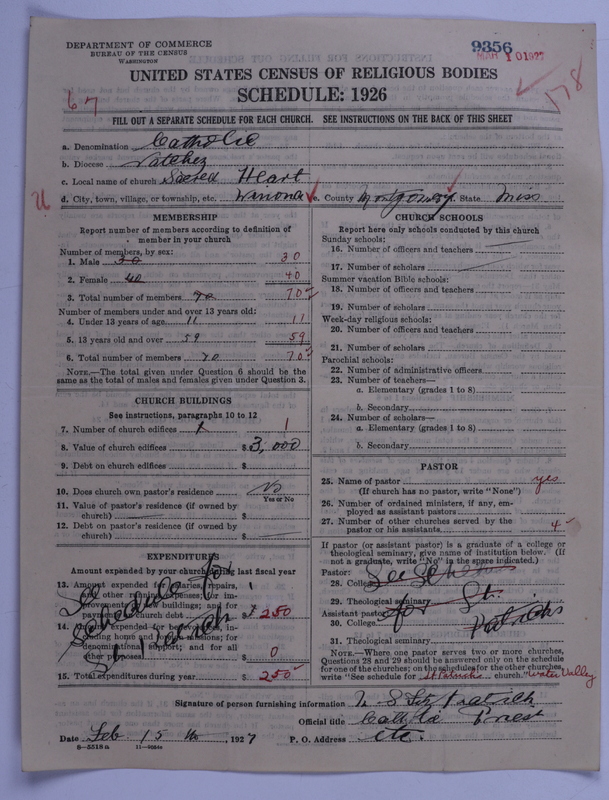 DEPARTMENT OF COMMERCE
BUREAU OF THE CENSUS
WASHINGTON
9356
MAR 10 1927
UNITED STATES CENSUS OF RELIGIOUS BODIES
SCHEDULE: 1926
67
178
FILL OUT A SEPARATE SCHEDULE FOR EACH CHURCH. SEE INSTRUCTIONS ON THE BACK OF THIS SHEET
a. Denomination Catholic
b. Diocese Natchez
c. Local name of church Sacred Heart
d. City, town, village, or township, etc. Winona e. County Montgomery State Miss
MEMBERSHIP
Report number of members according to definition of
member in your church
Number of members, by sex:
1. Male 30 30
2. Female 40 40
3. Total number of members 70 70
Number of members under and over 13 years old:
4. Under 13 years of age 11 11
5. 13 years old and over 59 59
6. Total number of members 70 70
NOTE.—The total given under Question 6 should be
same as the total of males and females given under Question 3.
CHURCH BUILDINGS
See instructions, paragraphs 10 to 12
7. Number of church edifices 1 1
8. Value of church edifices $ 3,000
9. Debt on church edifices $
10. Does church own pastor's residence No
Yes or No
11. Value of pastor's residence (if owned by
church) $
12. Debt on pastor's residence (if owned by
church) $
EXPENDITURES
Amount expended by your church during last fiscal year
13. Amount expended for salaries, repairs,
and other running expenses; for im-
provements or new buildings; and for
payments on church debt $ 250
14. Amount expended for benevolences, in-
cluding home and foreign missions; for
denominational support; and for all
other purposes 0
15. Total expenditures during year $ 250
See
Schedule for
St. Patrick
CHURCH SCHOOLS
Report here only schools conducted by this church
Sunday schools:
16. Number of officers and teachers
17. Number of scholars
Summer vacation Bible schools:
18. Number of officers and teachers
19. Number of scholars
Week-day religious schools:
20. Number of officers and teachers
21. Number of scholars
Parochial schools:
22. Number of administrative officers
23. Number of teachers—
a. Elementary (grades 1 to 8)
b. Secondary
24. Number of scholars—
a. Elementary (grades 1 to 8)
b. Secondary
PASTOR
25. Name of pastor yes
(If church has no pastor, write "None")
26. Number of ordained ministers, if any, em-
ployed as assistant pastors
27. Number of other churches served by the
pastor or his assistants 4
If pastor (or assistant pastor) is a graduate of a college or
theological seminary, give name of institution below. (If
not a graduate, write "No" in the space indicated.)
Pastor:
28. College See Schedule
29. Theological seminary for St.
Assistant pastor:
30. College Patricks
31. Theological seminary
NOTE.—Where one pastor serves two or more churches,
Questions 28 and 29 should be answered only on the schedule
for one of the churches; on the schedules for the other churches,
write "See schedule for St Patrick's church." Water Valley
Signature of person furnishing information
Official title Catholic Priest
Date Feb 15 th, 1927 P. O. Address etc.
8—5518a 11—9054e